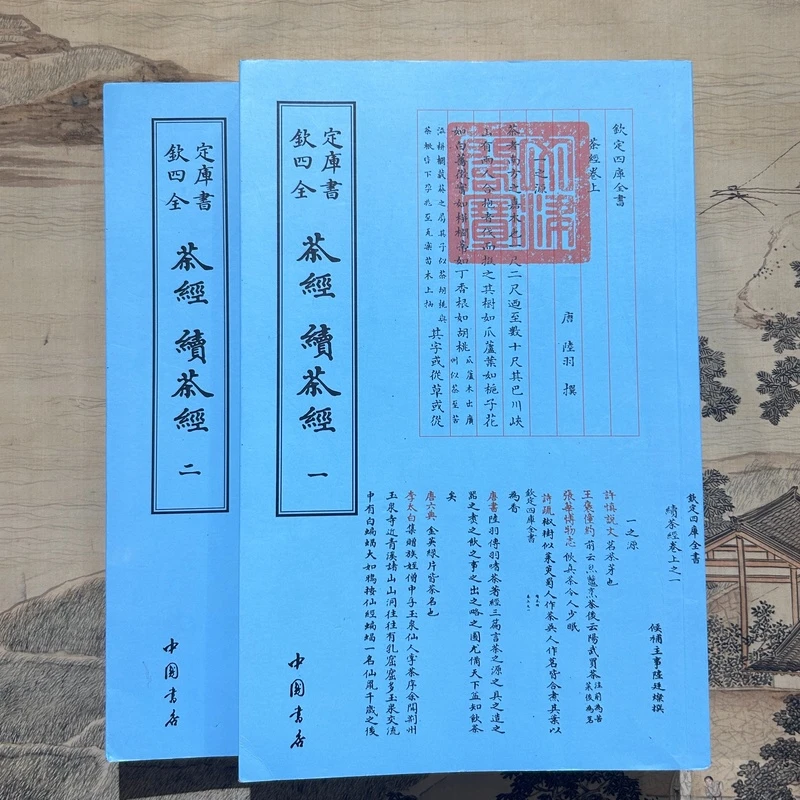 欽定四庫全書
茶經 續茶經
二
中國書店
欽定四庫全書
茶經 續茶經
一
中國書店
欽定四庫全書
茶經卷上
唐 陸羽 撰
一之源
茶者南方之嘉木也一尺二尺迺至數十尺其巴川峽
山有兩人合抱者伐而掇之其樹如瓜蘆葉如梔子花
如白薔薇實如栟櫚蒂如丁香根如胡桃瓜蘆木出廣州似茶至苦
澁栟櫚蒲葵之屬其子似茶胡桃與
茶根皆下孕兆至瓦礫苗木上抽
其字或從草或從
欽定四庫全書
續茶經卷上之一
候補主事陸廷燦撰
一之源
許慎說文茗荼芽也
王褒僮約前云炰鱉烹茶後云陽武買茶注前為苦菜後為茗
張華博物志飲真茶令人少眠
詩疏椒樹似茱萸蜀人作茶吳人作茗皆合煮其葉以
欽定四庫全書
為香
唐書陸羽傳羽嗜茶著經三篇言茶之源之具之造之
器之煮之飲之事之出之略之圖尤備天下益知飲茶
矣
唐六典金英綠片皆茶名也
李太白集贈族姪僧中孚玉泉仙人掌茶序余聞荊州
玉泉寺近青溪諸山山洞往往有乳窟窟多玉泉交流
中有白蝙蝠大如鴉按仙經蝙蝠一名仙鼠千歲之後